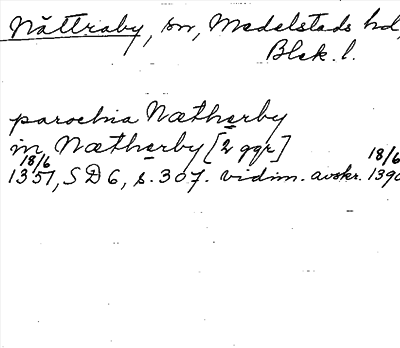 Nättraby, sn, Medelstads hd,
Blek. l.
parochia Nætherby
in Nætherby [2 ggr]
18/6 18/6
1351, SD 6, s. 307. vidim. avskr. 1390